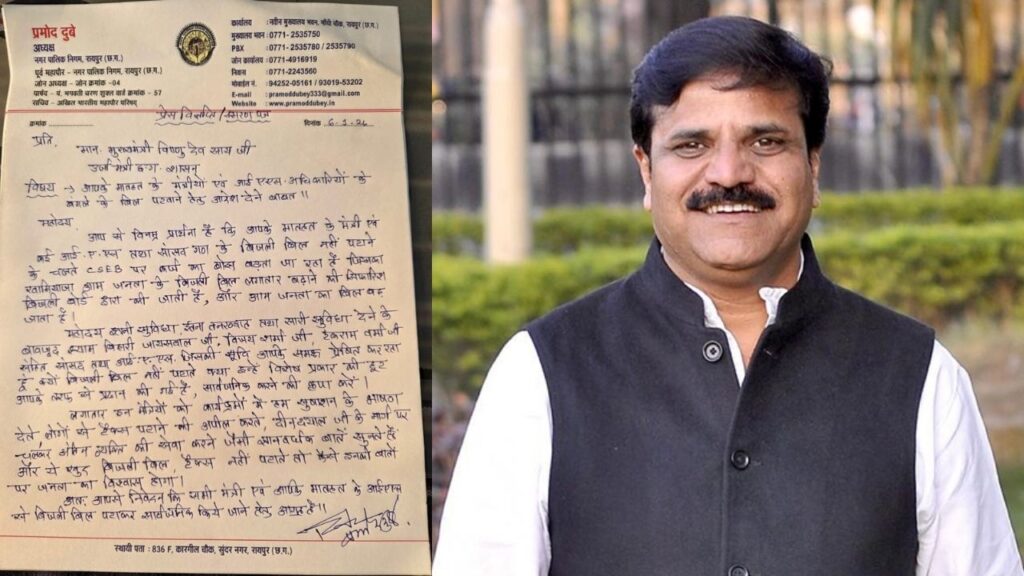 प्रमोद दुबे
अध्यक्ष
नगर पालिक निगम, रायपुर (छ.ग.)
पूर्व महापौर - नगर पालिक निगम, रायपुर (छ.ग.)
जोन अध्यक्ष - जोन क्रमांक - 04
पार्षद - पं. भगवती चरण शुक्ल वार्ड क्रमांक - 57
सचिव - अखिल भारतीय महापौर परिषद्
कार्यालय : नवीन मुख्यालय भवन, गाँधी चौक, रायपुर (छ.ग.)
मुख्यालय भवन : 0771-2535750
PBX : 0771-2535780 / 2535790
जोन कार्यालय : 0771-4916919
निवास : 0771-2243560
मोबाईल नं. : 94252-05161 93019-53202
E-mail : pramoddubey333@gmail.com
Website : www.pramoddubey.in
प्रेस विज्ञप्ति/स्मरण पत्र
क्रमांक दिनांक 6-1-26
प्रति,
मान. मुख्यमंत्री विष्णु देव साय जी
उर्जा मंत्री छ.ग. शासन
विषय → आपके मातहत के मंत्रीयो एवं आई.एएस. अधिकारियों के
बंगले के बिल पटवाने हेतु आदेश देने बाबत।।
महोदय
आप से विनम्र प्रार्थना है कि आपके मातहत के मंत्री एवं
कई आई.ए.एस तथा सांसद गण के बिजली बिल नहीं पटाने
के चलते CSEB पर कर्ज का बोझ बढ़ता जा रहा है जिसका
खामियाजा आम जनता के बिजली बिल लगातार बढ़ाने की सिफारिश
बिजली बोर्ड द्वारा की जाती है, और आम जनता का बिल बढ़
जाता है।
महोदय इतनी सुविधा इतना तनख्वाह तथा सारी सुविधा देने के
बावजूद श्याम बिहारी जायसवाल जी, विजय शर्मा जी, टंकराम वर्मा जी
सहित सांसद तथा आई.ए.एस. जिसकी सूचि आपके समक्ष प्रेषित कर रहा
हूँ क्यों बिजली बिल नहीं पटाते क्या इन्हें विशेष प्रकार की छूट
आपके तरफ से प्रदान की गई है, सार्वजनिक करने की कृपा करें।
लगातार इन मंत्रियों को कार्यक्रमों में हम सुशासन के भाषण
देते, लोगों से टैक्स पटाने की अपील करते, दीनदयाल जी के मार्ग पर
चलकर अंतिम व्यक्ति की सेवा करने जैसी ज्ञानवर्धक बातें सुनते हैं
और ये खुद बिजली बिल, टैक्स नहीं पटाते तो कैसे इनकी बातों
पर जनता का विश्वास होगा।
अतः आपसे निवेदन कि सभी मंत्री एवं आपके मातहत के आईएएस
से बिजली बिल पटाकर सार्वजनिक किये जाने हेतु आग्रह है।।
स्थायी पता : 836 F, कारगील चौक, सुंदर नगर, रायपुर (छ.ग.)